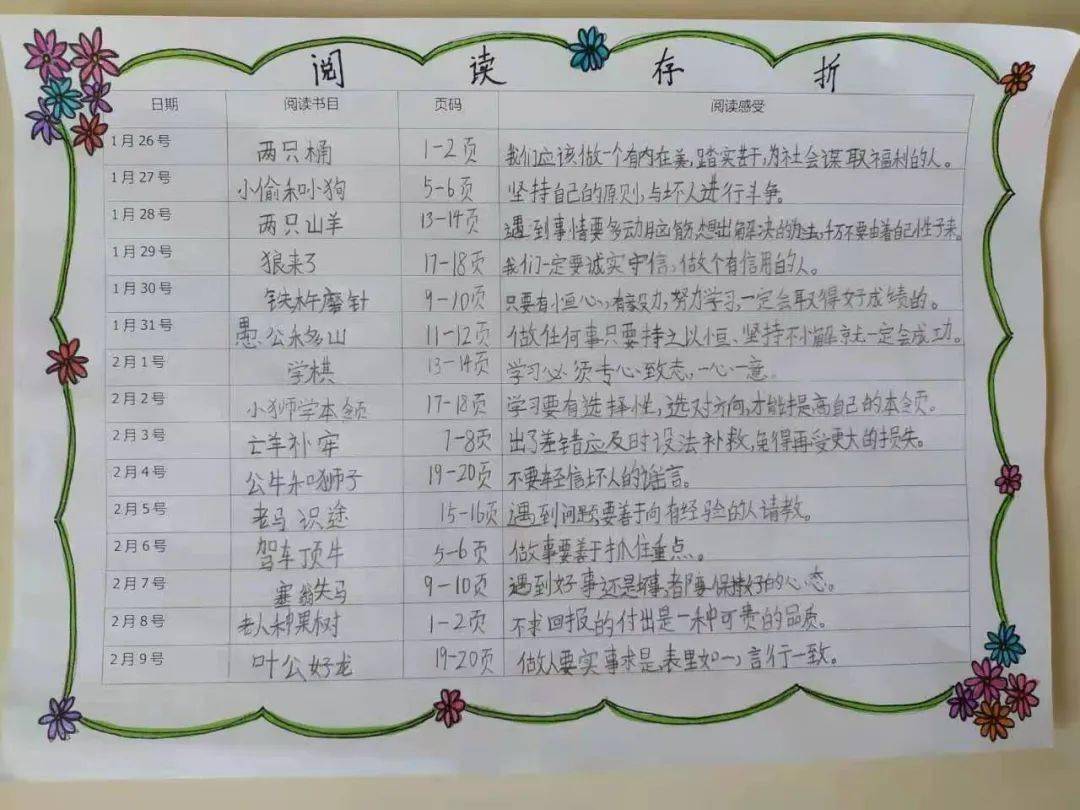 阅读存折
日期 阅读书目 页码 阅读感受
1月26号 两只桶 1-2页 我们应该做一个有内在美,踏实苦干,为社会谋取福利的人。
1月27号 小偷和小狗 5-6页 坚持自己的原则,与坏人进行斗争。
1月28号 两只山羊 13-14页 遇到事情要多动脑筋,想出解决的办法,千万不要由着自己性子来。
1月29号 狼来了 17-18页 我们一定要诚实守信,做个有信用的人。
1月30号 铁杵磨针 9-10页 只要有恒心,有毅力,努力学习,一定会取得好成绩的。
1月31号 愚公移山 11-12页 做任何事只要持之以恒、坚持不懈,就一定会成功。
2月1号 学棋 13-14页 学习必须专心致志,一心一意。
2月2号 小狮学本领 17-18页 学习要有选择性,选对方向,才能提高自己的本领。
2月3号 亡羊补牢 7-8页 出了差错应及时设法补救,免得再受更大的损失。
2月4号 公牛和狮子 19-20页 不要轻信坏人的谣言。
2月5号 老马识途 15-16页 遇到问题,要善于向有经验的人请教。
2月6号 驾车顶牛 5-6页 做事要善于抓住重点。
2月7号 塞翁失马 9-10页 遇到好事还是坏事,都要保持好的心态。
2月8号 老人种果树 1-2页 不求回报的付出是一种可贵的品质。
2月9号 叶公好龙 19-20页 做人要实事求是,表里如一,言行一致。